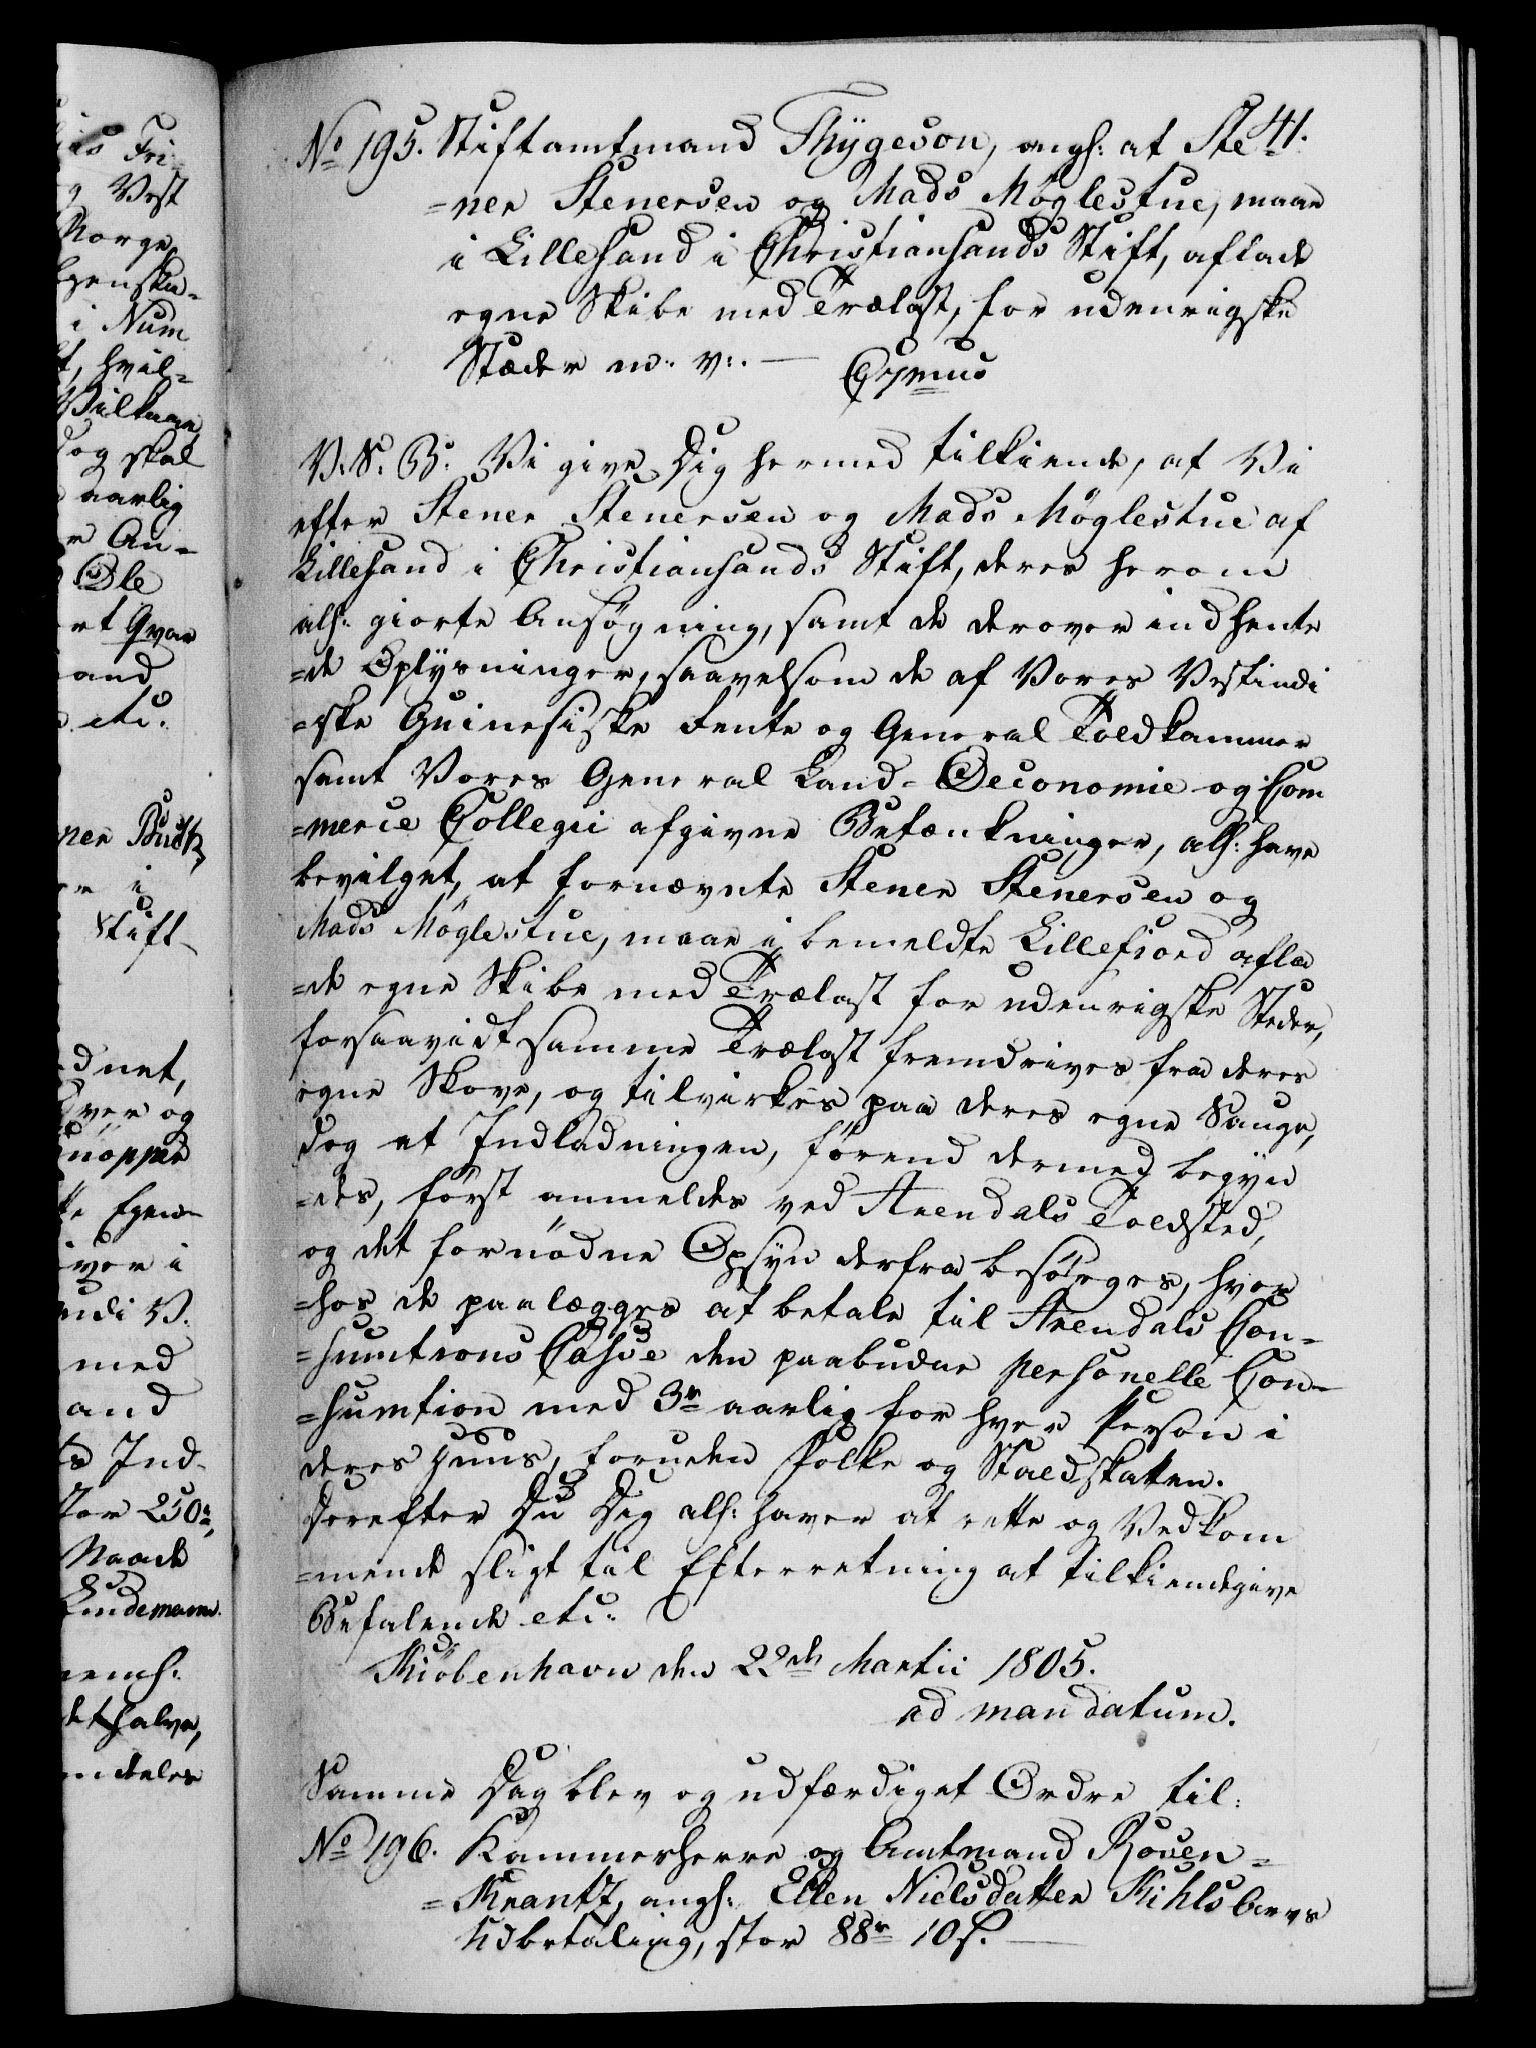 41.
No 195. Stiftamtmand Thÿgeson, angh: at Ste
=ner Stenersen og Mads Möglestue, maae
i Lillesand i Christiansands Stift, aflade
egne Skibe med Trælast, for udenrigske
Stæder m: v:. —
V. S. B: Vi give Dig hermed tilkiende, at Vi
efter Stener Stenersen og Mads Möglestue af
Lillesand i Christiansands Stift, deres herom
alh: giorte Ansøgning, samt de derover indhente
=de Oplysninger, saavelsom de af Vores Vestindi
=ske Guinesiske Rente og General Toldkammer
samt Vores General Land-Oeconomie og Com
=merce Collegii afgivne Betænkninger, alh: have
bevilget, at fornævnte Stener Stenersen og
Mads Möglestue, maae i bemeldte Lillefiord afla
=de egne Skibe med Trælast for udenrigske Steder,
forsaavidt samme Trælast fremdrives fra deres
egne Skove, og tilvirkes paa deres egne Sauge,
dog at Indladningen, förend dermed begÿn
=des, först anmeldes ved Arendals Toldsted,
og det fornödne Opsÿn derfra besörges, hvor
=hos de paalægges at betale til Arendals Con-
=sumtions Casse den paabudne personelle Con-
=sumtion med 3r aarlig for hver Person i
deres Huus, foruden Folke og Staldskatten.
Derefter Du Dig alh: haver at rette og Vedkom
=mende sligt til Efterretning at tilkiendegive
Befalende etc:
Kiöbenhavn den 22de Martii 1805.
ad mandatum.
Samme Dag blev og udfærdiget Ordre til:
No 196. Kammerherre og Amtmand Rosen=
=Krantz, angh: Ellen Nielsdatter Kihls Arvs
Udbetaling, stor 88r 10s. —